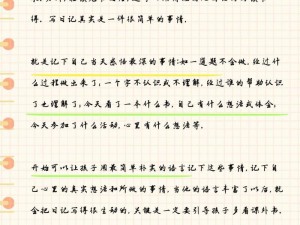 得，写日记真实是一件很简单的事情。
就是记下自己当天感悟最深的事情:如一道题不会做，经过什
么过程做出来了，一个字不认识或不理解，经过谁的帮助认识
了也理解了；今天看了一本什么书，自己有什么想法或体会；
今天参加了什么活动，心里有什么想法等。
开始可以让孩子用最简单朴实的语言记下这些事情，记下自
己心里的真实想法和所做的事情，当他的语言丰富了以后，就
会把日记写得很生动的，关键是一定要引导孩子多看课外书，